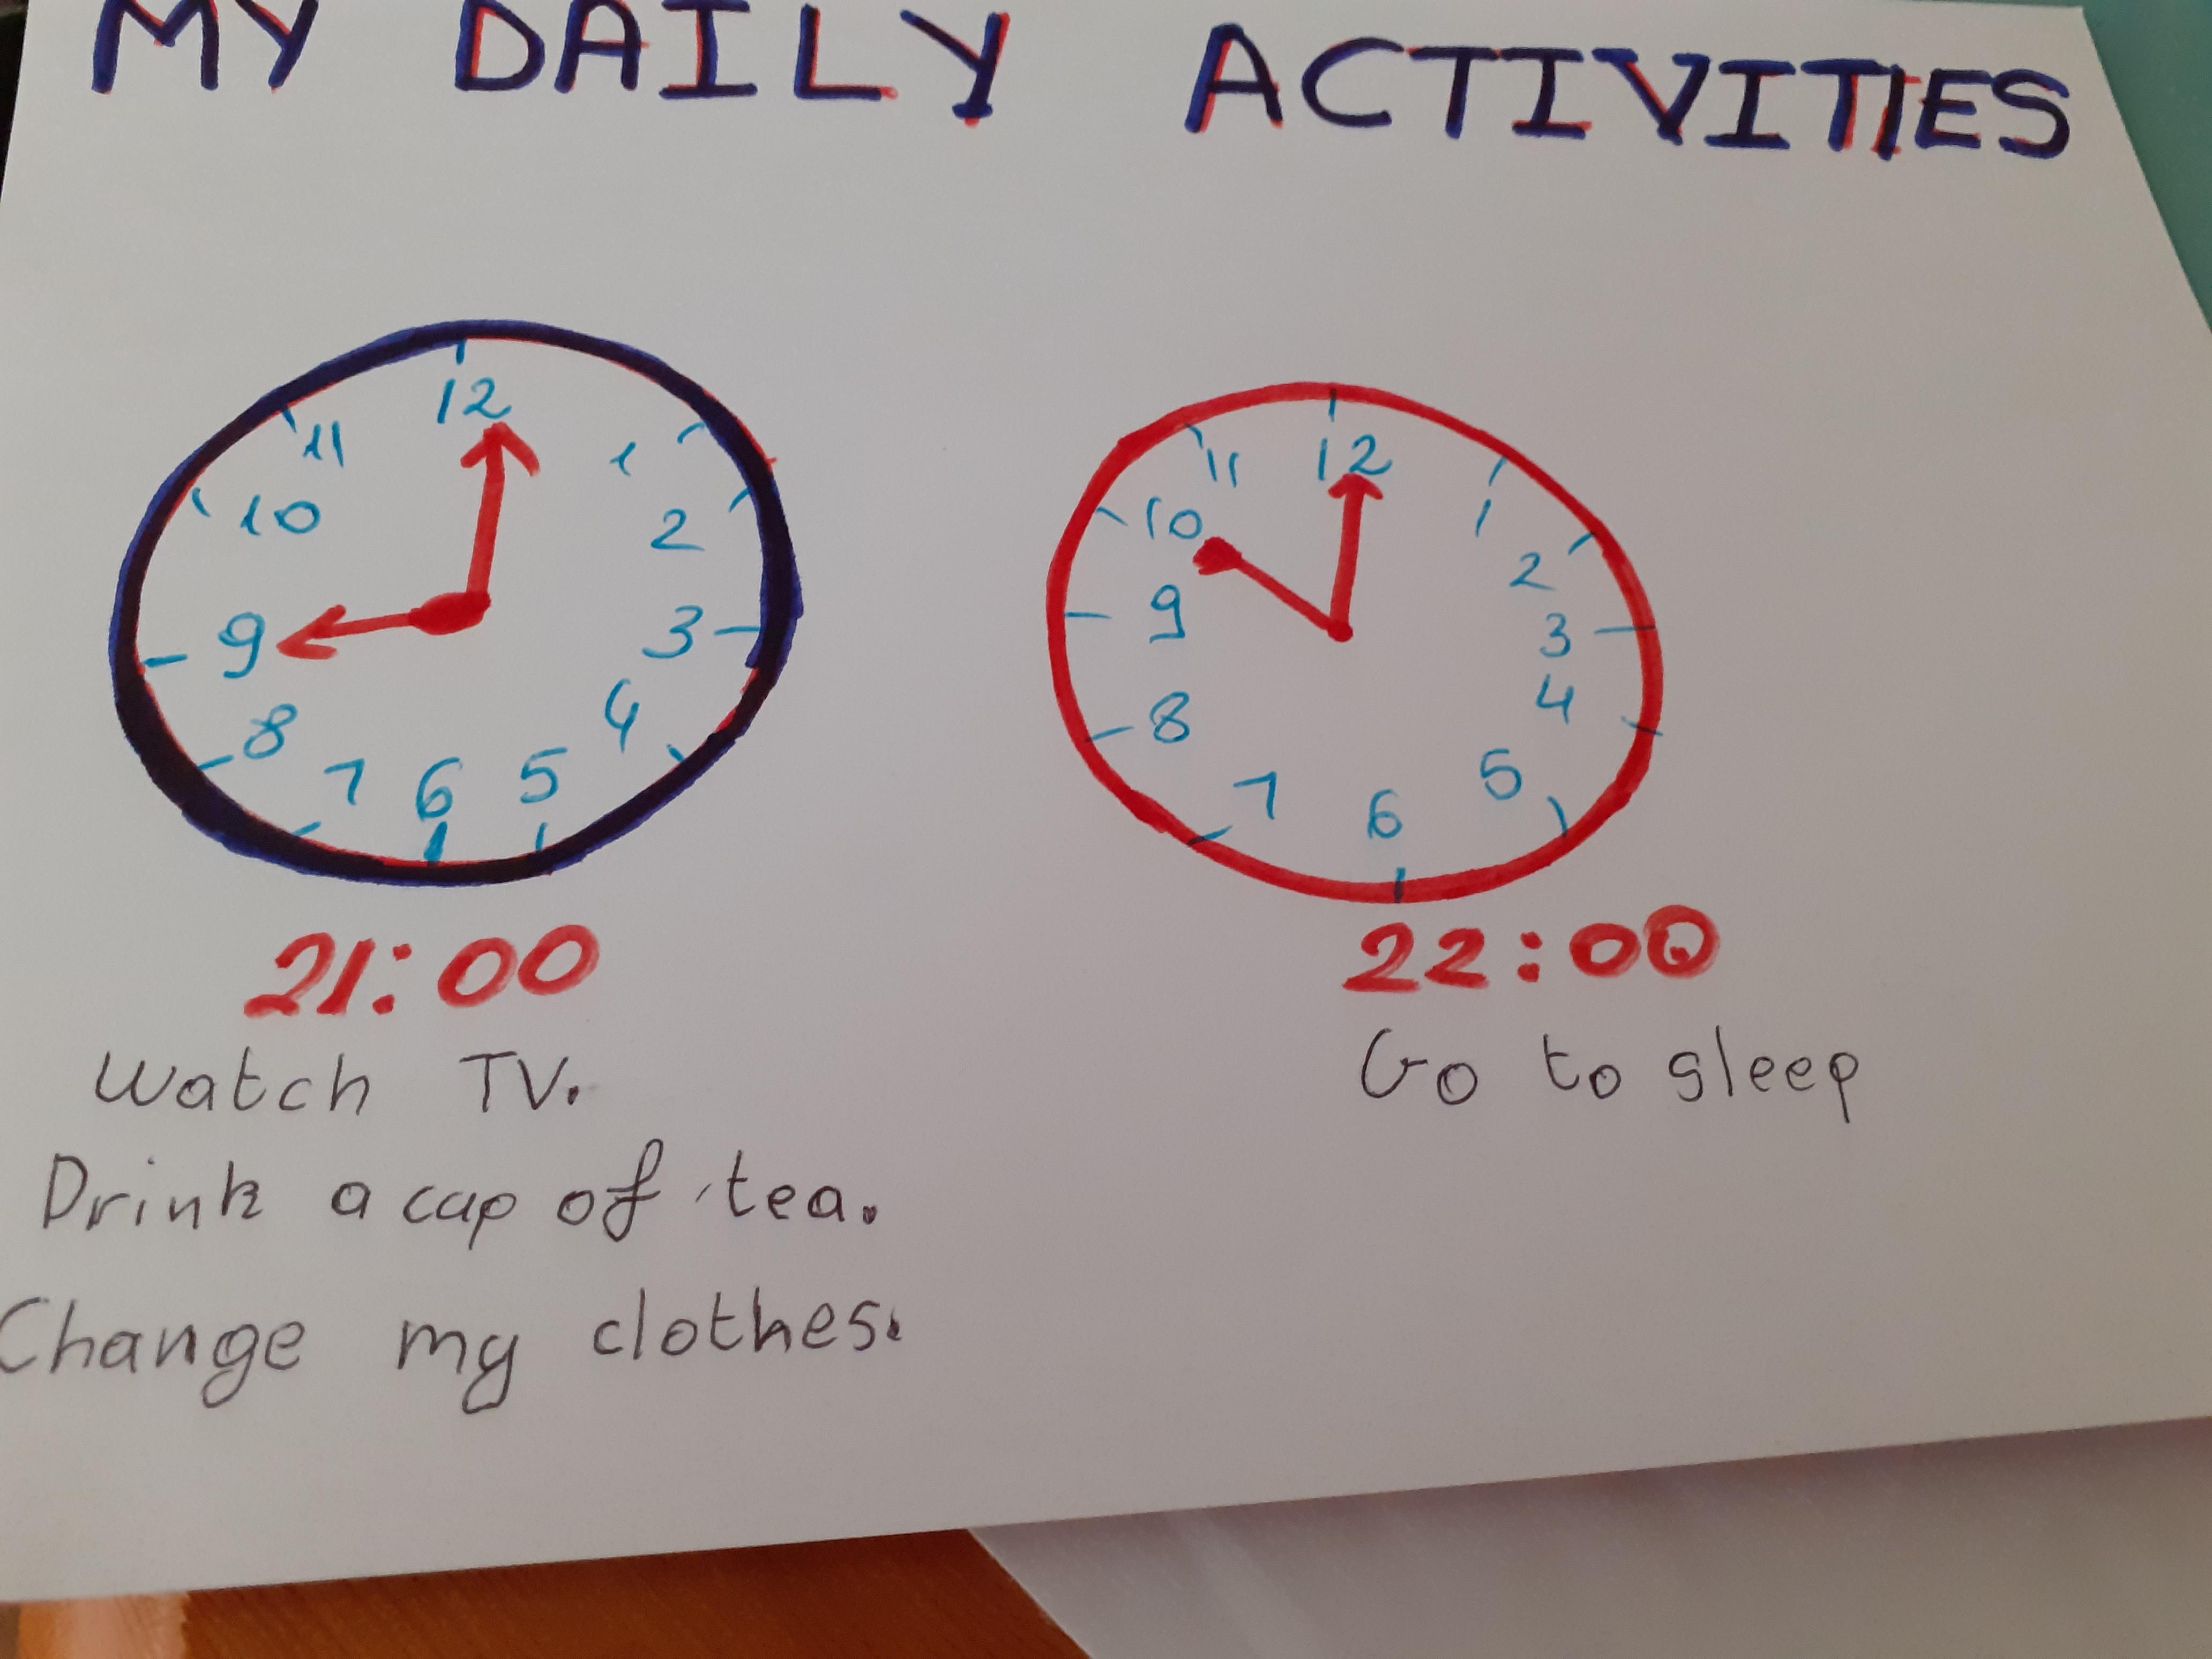 MY DAILY ACTIVITIES
12
11
1
10
2
9
3
8
4
7
6
5
21:00
Watch TV.
Drink a cup of tea.
Change my clothes.
12
11
1
10
2
9
3
8
4
7
6
5
22:00
Go to sleep